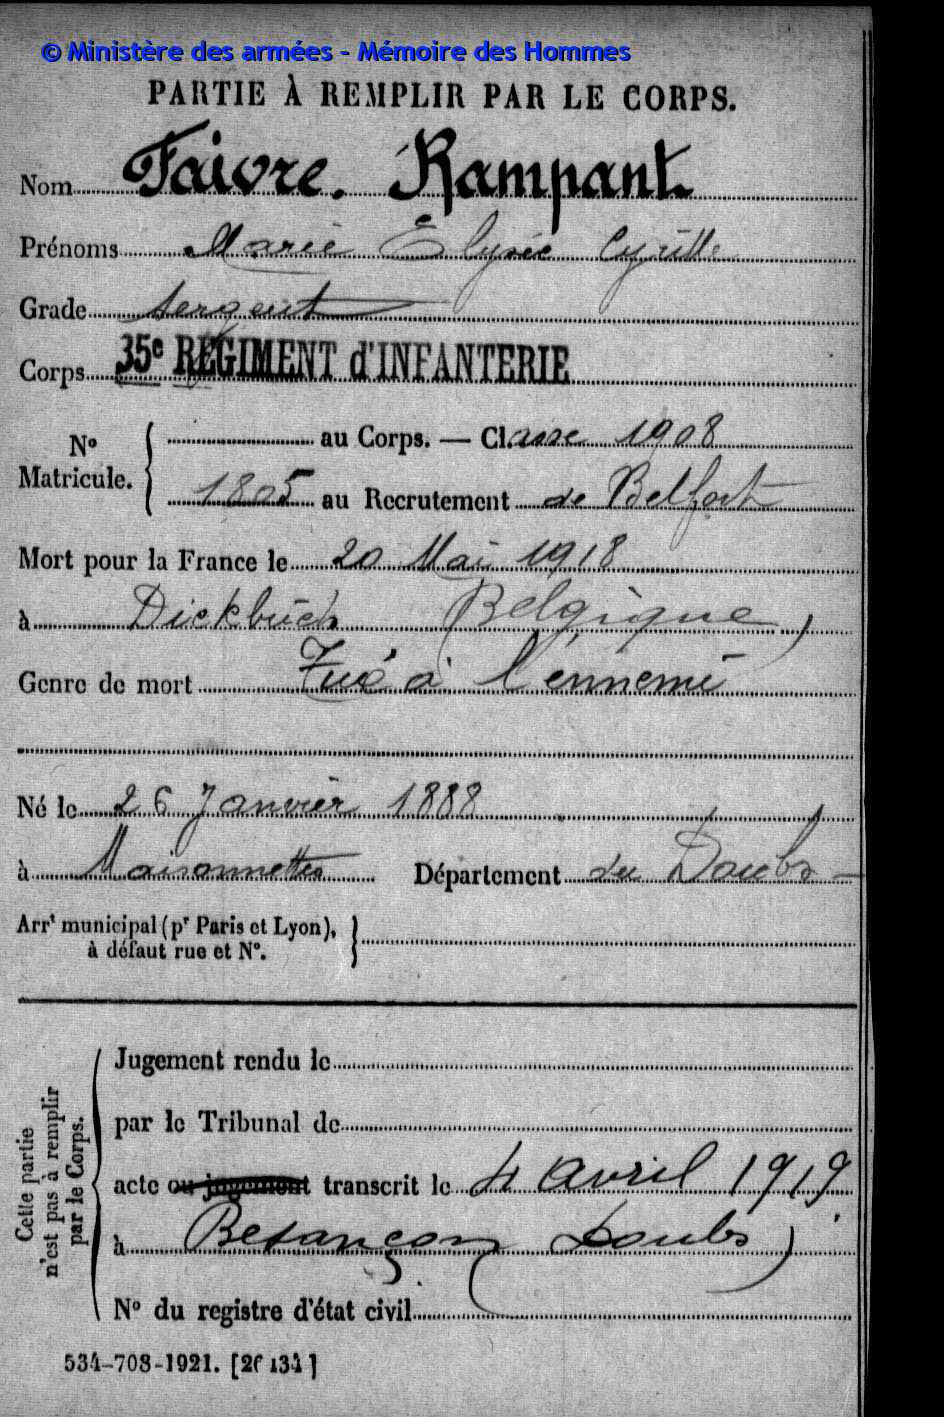 © Ministère des armées - Mémoire des Hommes
PARTIE À REMPLIR PAR LE CORPS.
Nom Faivre. Rampant
Prénoms Marie Elysée Cyrille
Grade sergent
Corps 35e RÉGIMENT d'INFANTERIE
No Matricule.
au Corps. — Classe 1908
1805 au Recrutement de Belfort
Mort pour la France le 20 Mai 1918
à Dickbüch (Belgique)
Genre de mort Tué à l'ennemi
Né le 26 Janvier 1888
à Maisonnettes Département du Doubs
Arrt municipal (pr Paris et Lyon),
à défaut rue et No.
Cette partie
n'est pas à remplir
par le Corps.
Jugement rendu le
par le Tribunal de
acte ou jugement transcrit le 4 avril 1919
à Besançon (Doubs)
No du registre d'état civil
534-708-1921. [26434]